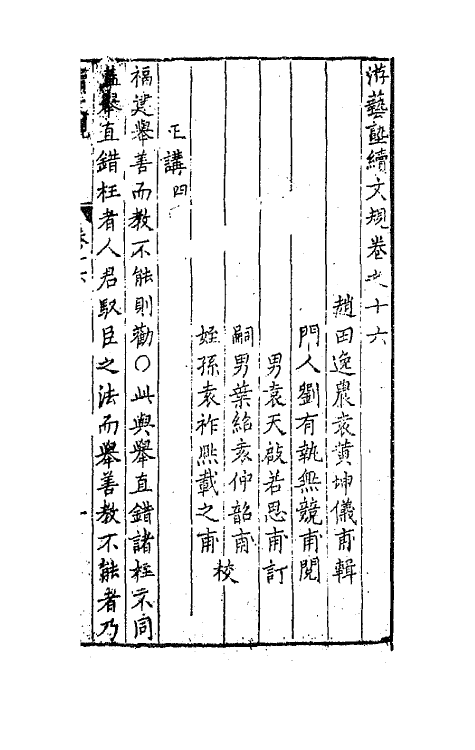 游藝塾續文規卷之十六
趙田逸農袁黃坤儀甫輯
門人劉有執無競甫閱
男袁天啟若思甫訂
嗣男葉紹袁仲韶甫
姪孫袁祚熙載之甫
校
正講四
福建舉善而教不能則勸〇此與舉直錯諸枉不同
蓋舉直錯枉者人君馭臣之法而舉善教不能者乃